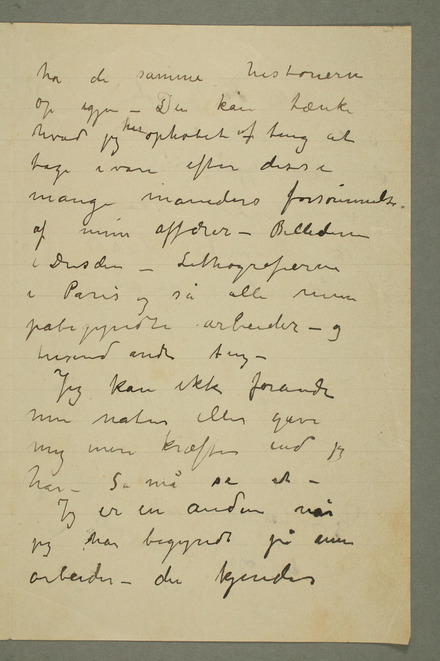 ha de samme historierne
op igjen – Du kan tænke
hvad jeg har ophobet af ting at
tage ivare efter disse
mange måneders forsømmelse
af mine affærer – Billederne
i Dresden – Lithografierne
i Paris og så alle mine
påbegyndte arbeider – og
tusend andre ting –
Jeg kan ikke forandre
min natur eller gave
mig mere kræfter end jeg
har – Så må se at –
Jeg er en anden når
jeg har begyndt på mine
arbeider – du kjender